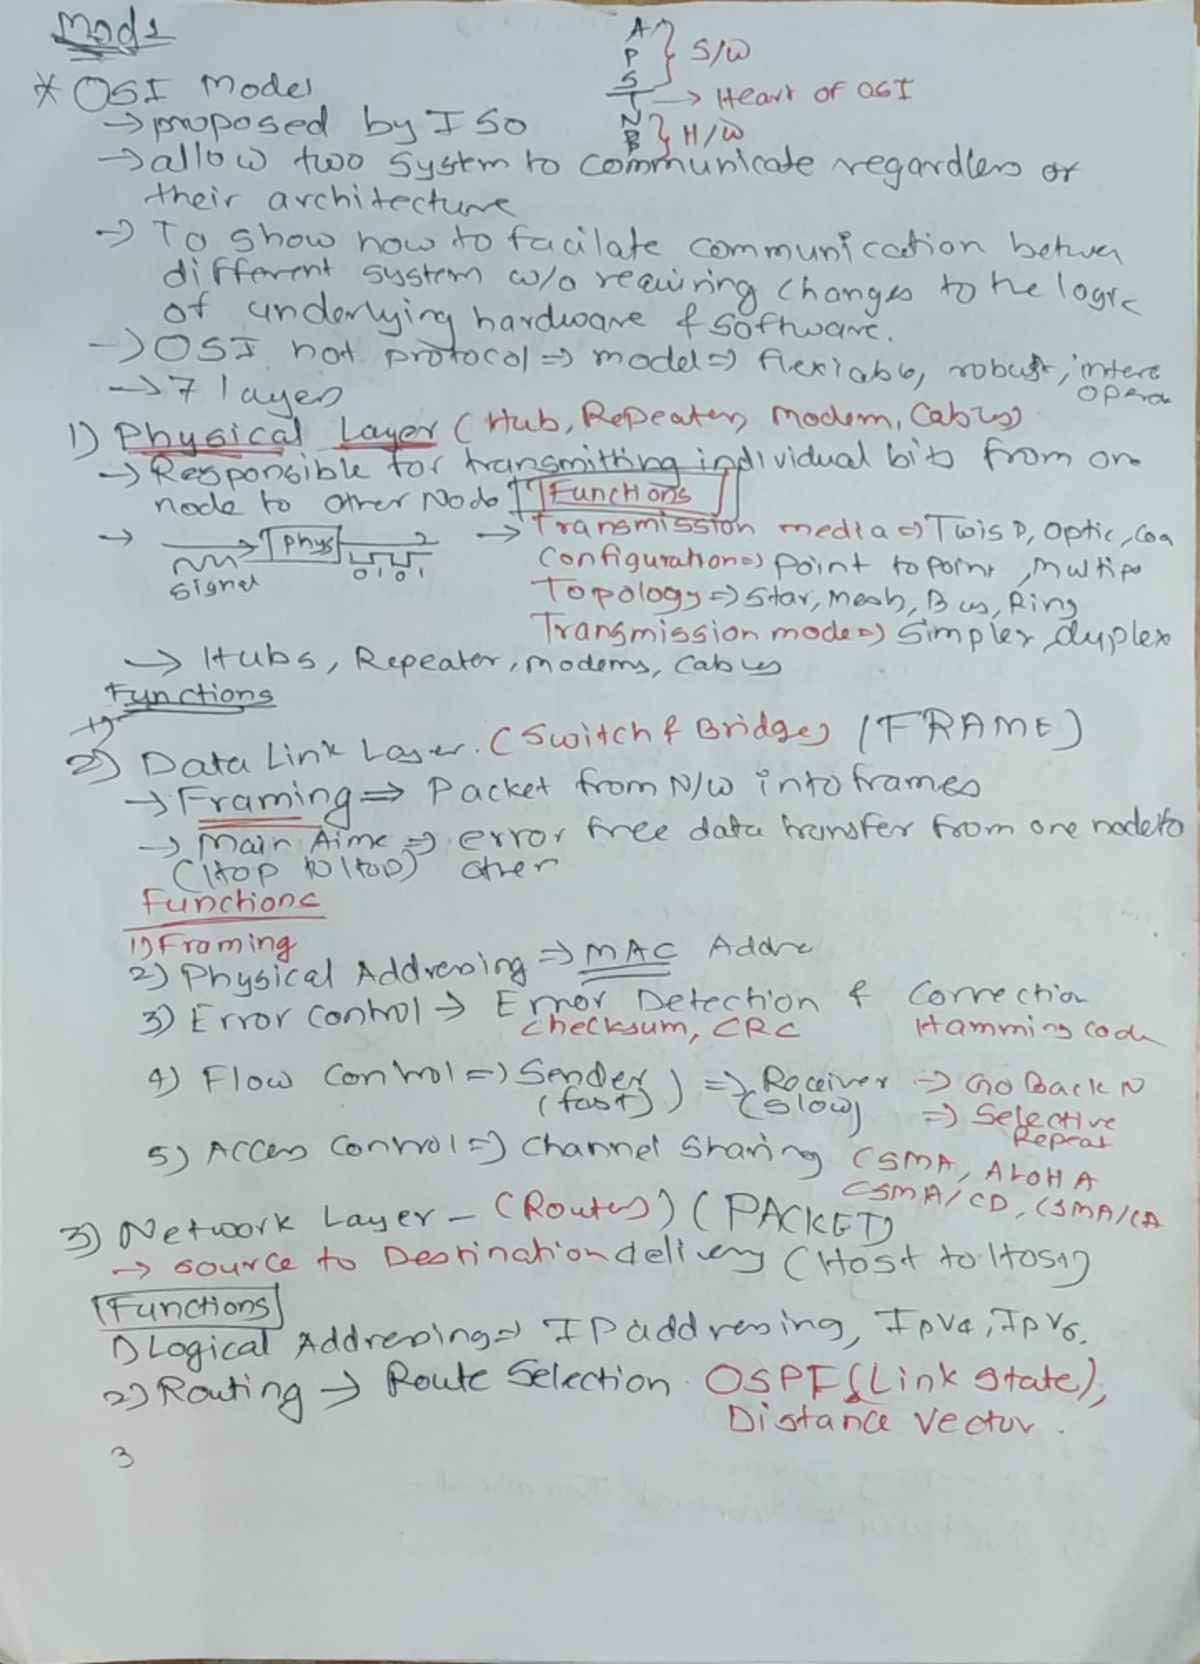 Mod1
A
P } S/W
S
T → Heart of OSI
N
P } H/W
* OSI Model
→ proposed by ISO
→ allow two system to communicate regardless of
their architecture
→ To show how to facilate communication betwen
different system w/o requiring changes to the logic
of underlying hardware & software.
→ OSI not protocol => model => flexiable, robust, intero
opera
→ 7 layers
1) Physical Layer (Hub, Repeater, modem, Cables)
→ Responsible for transmitting individual bits from one
node to other Node
Functions
→ Phys
signal 0 1 0 1
→ Transmission media => Twis P, Optic, Coa
Configuration => point to point, multipo
Topology => Star, Mesh, Bus, Ring
Transmission mode => Simplex, duplex
→ Hubs, Repeater, modems, Cables
Functions
1)
2) Data Link Layer. (Switch & Bridge) (FRAME)
→ Framing => Packet from N/W into frames
→ Main Aime => error free data transfer from one node to
(Hop to Hop) other
Functions
1) Framing
2) Physical Addressing => MAC Addre
3) Error Control → Error Detection & Correction
Checksum, CRC Hamming Code
4) Flow Control => Sender) => Receiver => Go Back N
(fast) (slow) => Selective
Repeat
5) Access Control => Channel Sharing CSMA, ALOHA
CSMA/CD, CSMA/CA
3) Network Layer - (Routes) (PACKET)
→ source to Destination delivery (Host to Host)
Functions
1) Logical Addressing => IP addressing, Ipv4, Ipv6.
2) Routing → Route Selection. OSPF (Link State),
Distance Vector.
3